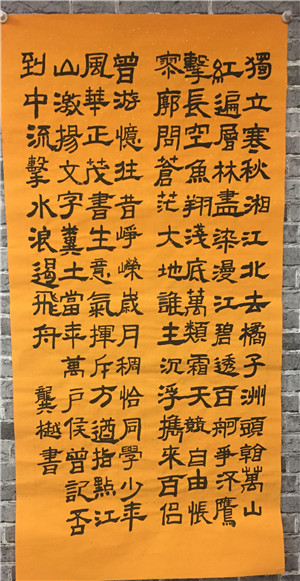 獨立寒秋湘江北去橘子洲頭看萬山
紅遍層林盡染漫江碧透百舸爭流鷹
擊長空魚翔淺底萬類霜天競自由悵
寥廓問蒼茫大地誰主沉浮携來百侶
曾游憶往昔崢嶸歲月稠恰同學少年
風華正茂書生意氣揮斥方遒指點江
山激揚文字糞土當年萬户侯曾記否
到中流擊水浪遏飛舟 龔樾書